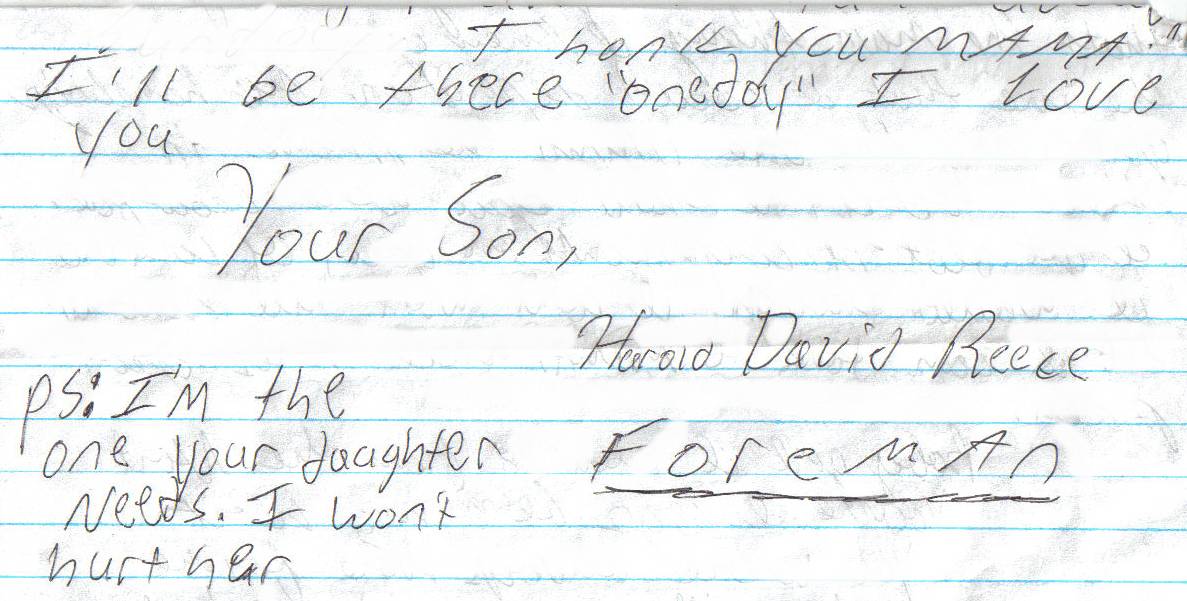 Thank you MAMA."
I'll be there "oneday" I Love
you.
Your Son,
Harold David Reece
Foreman
PS: I'm the
one your daughter
Needs. I won't
hurt her